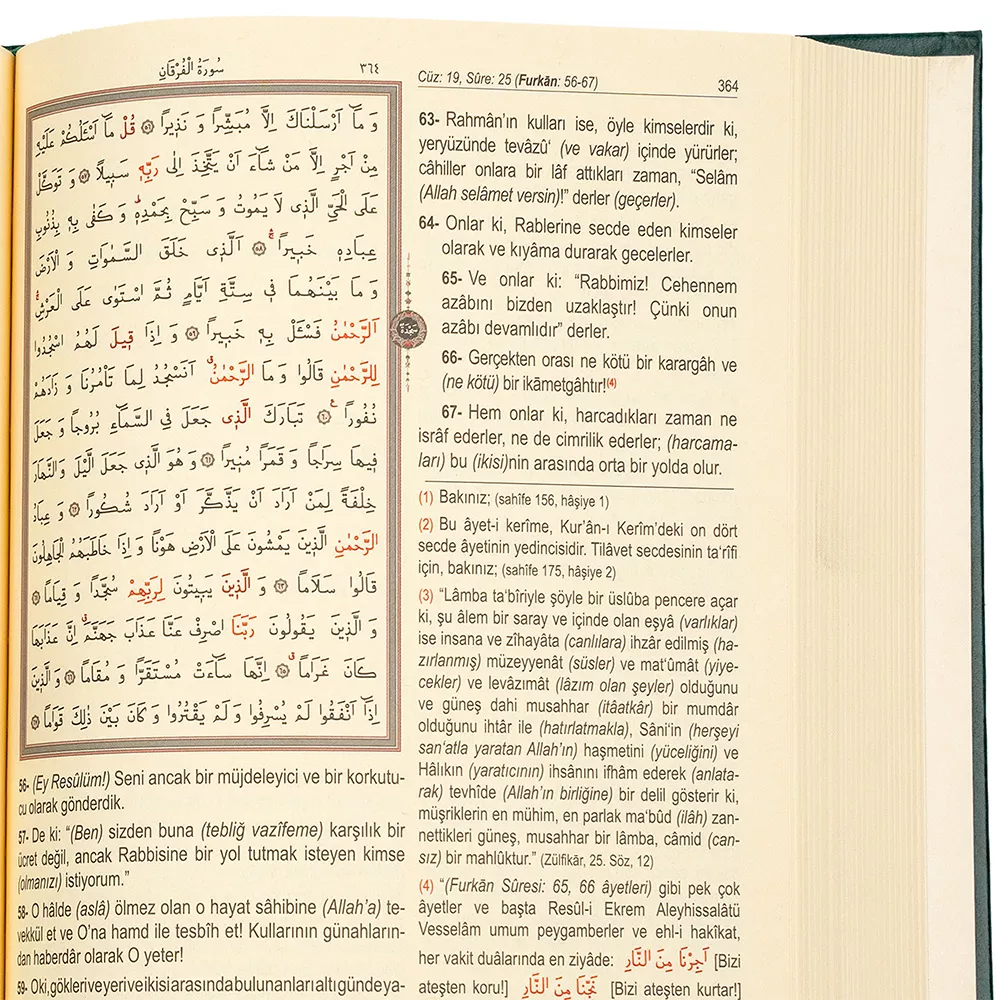 سُورَةُ الْفُرْقَانِ ٣٦٤
وَ مَٓا اَرْسَلْنَاكَ اِلَّا مُبَشِّرًا وَ نَذ۪يرًا ﴿٥٦﴾ قُلْ مَٓا اَسْـَٔلُكُمْ عَلَيْهِ
مِنْ اَجْرٍ اِلَّا مَنْ شَٓاءَ اَنْ يَتَّخِذَ اِلٰى رَبِّه۪ سَب۪يلًا ﴿٥٧﴾ وَ تَوَكَّلْ
عَلَى الْحَيِّ الَّذ۪ي لَا يَمُوتُ وَ سَبِّحْ بِحَمْدِه۪ۜ وَ كَفٰى بِه۪ بِذُنُوبِ
عِبَادِه۪ خَب۪يرًاۚ ﴿٥٨﴾ اَلَّذ۪ي خَلَقَ السَّمٰوَاتِ وَ الْاَرْضَ
وَ مَا بَيْنَهُمَا ف۪ي سِتَّةِ اَيَّامٍ ثُمَّ اسْتَوٰى عَلَى الْعَرْشِۚ
اَلرَّحْمٰنُ فَسْـَٔلْ بِه۪ خَب۪يرًا ﴿٥٩﴾ وَ اِذَا ق۪يلَ لَهُمُ اسْجُدُوا
لِلرَّحْمٰنِ قَالُوا وَ مَا الرَّحْمٰنُۗ اَنَسْجُدُ لِمَا تَأْمُرُنَا وَ زَادَهُمْ
نُفُورًا ﴿٦٠﴾ تَبَارَكَ الَّذ۪ي جَعَلَ فِي السَّمَٓاءِ بُرُوجًا وَ جَعَلَ
ف۪يهَا سِرَاجًا وَ قَمَرًا مُن۪يرًا ﴿٦١﴾ وَ هُوَ الَّذ۪ي جَعَلَ الَّيْلَ وَ النَّهَارَ
خِلْفَةً لِمَنْ اَرَادَ اَنْ يَذَّكَّرَ اَوْ اَرَادَ شُكُورًا ﴿٦٢﴾ وَ عِبَادُ
الرَّحْمٰنِ الَّذ۪ينَ يَمْشُونَ عَلَى الْاَرْضِ هَوْنًا وَ اِذَا خَاطَبَهُمُ الْجَاهِلُونَ
قَالُوا سَلَامًا ﴿٦٣﴾ وَ الَّذ۪ينَ يَب۪يتُونَ لِرَبِّهِمْ سُجَّدًا وَ قِيَامًا ﴿٦٤﴾
وَ الَّذ۪ينَ يَقُولُونَ رَبَّنَا اصْرِفْ عَنَّا عَذَابَ جَهَنَّمَۗ اِنَّ عَذَابَهَا
كَانَ غَرَامًاۗ ﴿٦٥﴾ اِنَّهَا سَٓاءَتْ مُسْتَقَرًّا وَ مُقَامًا ﴿٦٦﴾ وَ الَّذ۪ينَ
اِذَٓا اَنْفَقُوا لَمْ يُسْرِفُوا وَ لَمْ يَقْتُرُوا وَ كَانَ بَيْنَ ذٰلِكَ قَوَامًا ﴿٦٧﴾
سَجْدَة
56- (Ey Resûlüm!) Seni ancak bir müjdeleyici ve bir korkutu-
cu olarak gönderdik.
57- De ki: “(Ben) sizden buna (tebliğ vazîfeme) karşılık bir
ücret değil, ancak Rabbisine bir yol tutmak isteyen kimse
(olmanızı) istiyorum.”
58- O hâlde (aslâ) ölmez olan o hayat sâhibine (Allah’a) te-
vekkül et ve O’na hamd ile tesbîh et! Kullarının günahların-
dan haberdâr olarak O yeter!
59- O ki, gökleri ve yeri ve ikisi arasında bulunanları altı günde ya-
Cüz: 19, Sûre: 25 (Furkān: 56-67) 364
63- Rahmân’ın kulları ise, öyle kimselerdir ki,
yeryüzünde tevâzû‘ (ve vakar) içinde yürürler;
câhiller onlara bir lâf attıkları zaman, “Selâm
(Allah selâmet versin)!” derler (geçerler).
64- Onlar ki, Rablerine secde eden kimseler
olarak ve kıyâma durarak gecelerler.
65- Ve onlar ki: “Rabbimiz! Cehennem
azâbını bizden uzaklaştır! Çünki onun
azâbı devamlıdır” derler.
66- Gerçekten orası ne kötü bir karargâh ve
(ne kötü) bir ikāmetgâhtır!(4)
67- Hem onlar ki, harcadıkları zaman ne
isrâf ederler, ne de cimrilik ederler; (harcama-
ları) bu (ikisi)nin arasında orta bir yolda olur.
(1) Bakınız; (sahîfe 156, hâşiye 1)
(2) Bu âyet-i kerîme, Kur’ân-ı Kerîm’deki on dört
secde âyetinin yedincisidir. Tilâvet secdesinin ta‘rîfi
için, bakınız; (sahîfe 175, hâşiye 2)
(3) “Lâmba ta‘bîriyle şöyle bir üslûba pencere açar
ki, şu âlem bir saray ve içinde olan eşyâ (varlıklar)
ise insana ve zîhayâta (canlılara) ihzâr edilmiş (ha-
zırlanmış) müzeyyenât (süsler) ve mat‘ûmât (yiye-
cekler) ve levâzımât (lâzım olan şeyler) olduğunu
ve güneş dahi musahhar (itâatkâr) bir mumdâr
olduğunu ihtâr ile (hatırlatmakla), Sâni‘in (herşeyi
san‘atla yaratan Allah’ın) haşmetini (yüceliğini) ve
Hâlıkın (yaratıcının) ihsânını ifhâm ederek (anlata-
rak) tevhîde (Allah’ın birliğine) bir delil gösterir ki,
müşriklerin en mühim, en parlak ma‘bûd (ilâh) zan-
nettikleri güneş, musahhar bir lâmba, câmid (can-
sız) bir mahlûktur.” (Zülfikār, 25. Söz, 12)
(4) “(Furkān Sûresi: 65, 66 âyetleri) gibi pek çok
âyetler ve başta Resûl-i Ekrem Aleyhissalâtü
Vesselâm umum peygamberler ve ehl-i hakîkat,
her vakit duâlarında en ziyâde: اَجِرْنَا مِنَ النَّارِ [Bizi
ateşten koru!] نَجِّنَا مِنَ النَّارِ [Bizi ateşten kurtar!]